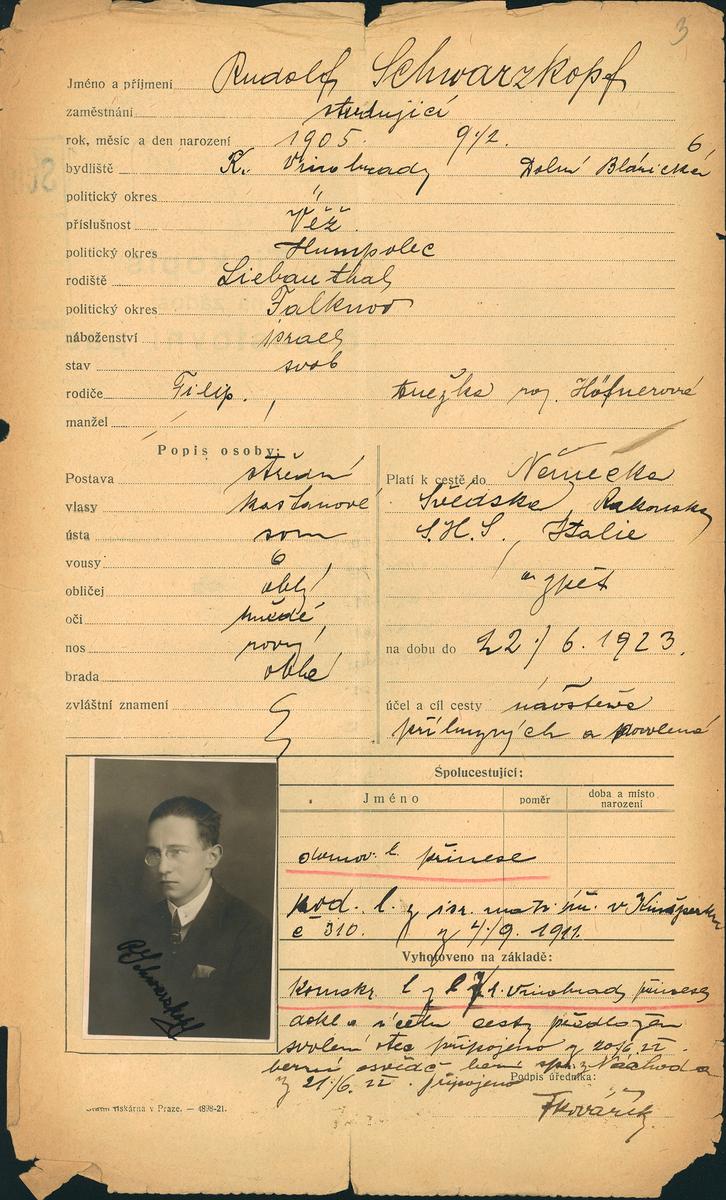 3
Jméno a příjmení Rudolf Schwarzkopf
zaměstnání studující
rok, měsíc a den narození 1905 9/2. 6,
bydliště K. Vinohrady Dolní Blanická
politický okres "
příslušnost Věž
politický okres Humpolec
rodiště Liebauthal
politický okres Falknov
náboženství israel
stav svob
rodiče Filip, Anežka roz. Höfnerová
manžel
Popis osoby:
Postava střední
vlasy kaštanové
ústa soum
vousy 0
obličej oblý
oči hnědé
nos rovný
brada oblá
zvláštní znamení
Platí k cestě do Německa
Švédska, Rakouska
S.H.S, Italie
a zpět
na dobu do 22/6. 1923.
účel a cíl cesty návštěva
příbuzných a
Spolucestující:
Jméno poměr doba a místo narození
domov. l. přinese
rod. l. z isr. matr. úř. v Kinšperku
č 310. z 4/9. 1911.
Vyhotoveno na základě:
Konskr. l z Vinohrady přinese
dokl. o účelu cesty předložen
svolení otce připojeno z 20/6. 22.
berní osvědč. bern. spr. Náchod a
z 21/6. 22. připojeno
Podpis úředníka:
Kovářík
RSchwarzkopf
Státní tiskárna v Praze. — 4898-21.